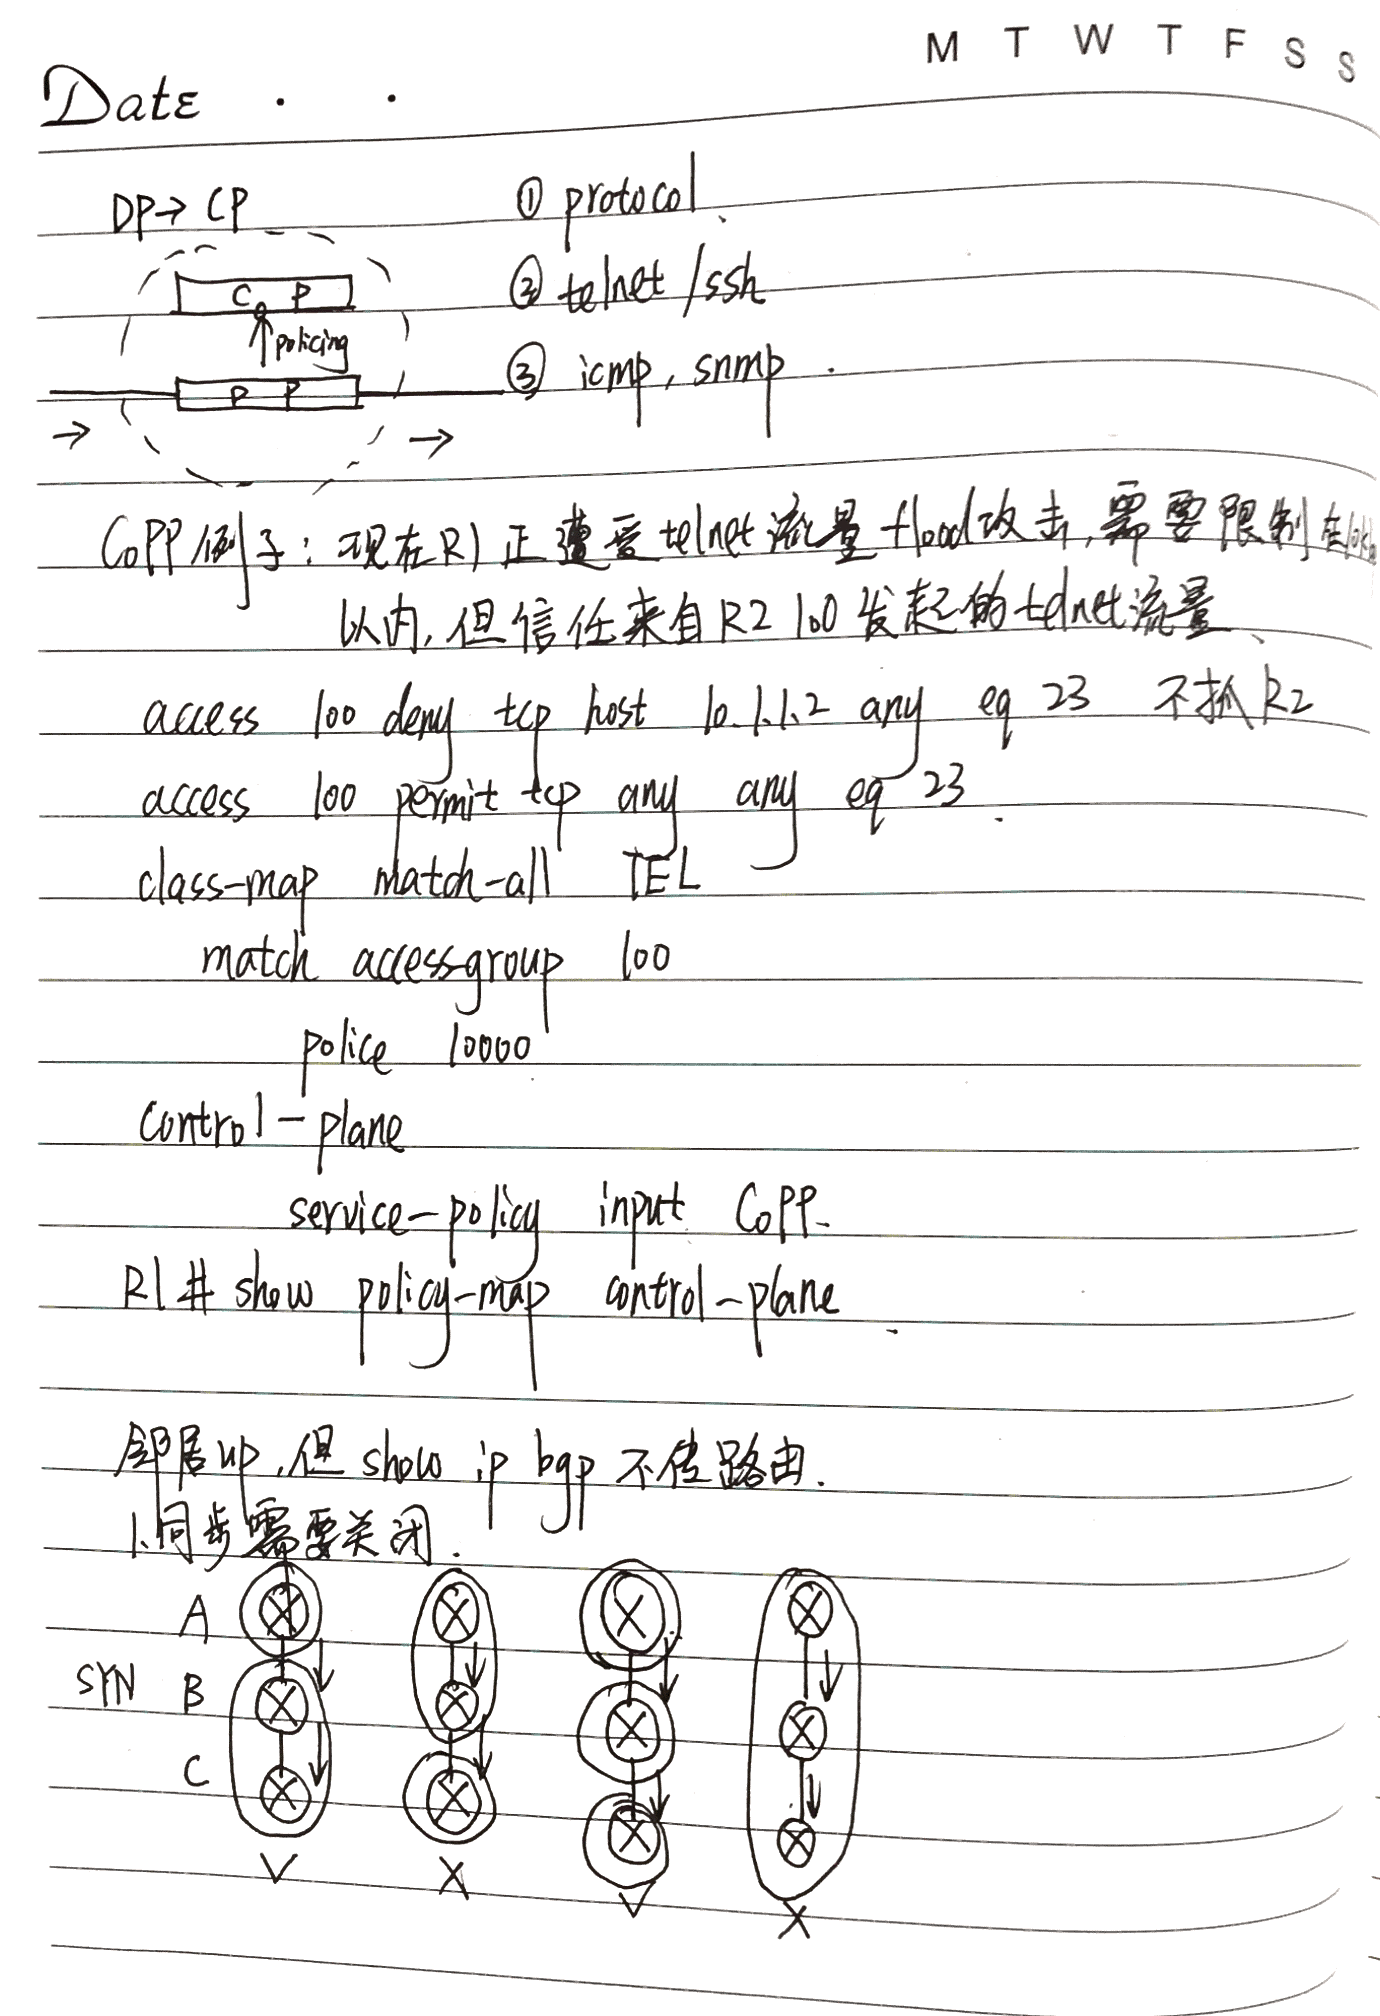 M T W T F S S
Date . .
DP→ CP
① protocol.
C P
② telnet/ssh
policing
③ icmp, snmp.
D P
CoPP例子: 现在R1正遭受telnet流量flood攻击,需要限制在
以内,但信任来自R2 loo发起的telnet流量、
access 100 deny tcp host 10.1.1.2 any eq 23 不抓R2
access 100 permit tcp any any eq 23.
class-map match-all TEL
match access-group 100
police 10000
control-plane
service-policy input CoPP.
R1# show policy-map control-plane.
邻居up,但show ip bgp不传路由.
1.同步需要关闭.
A
SYN B
C
V X V X